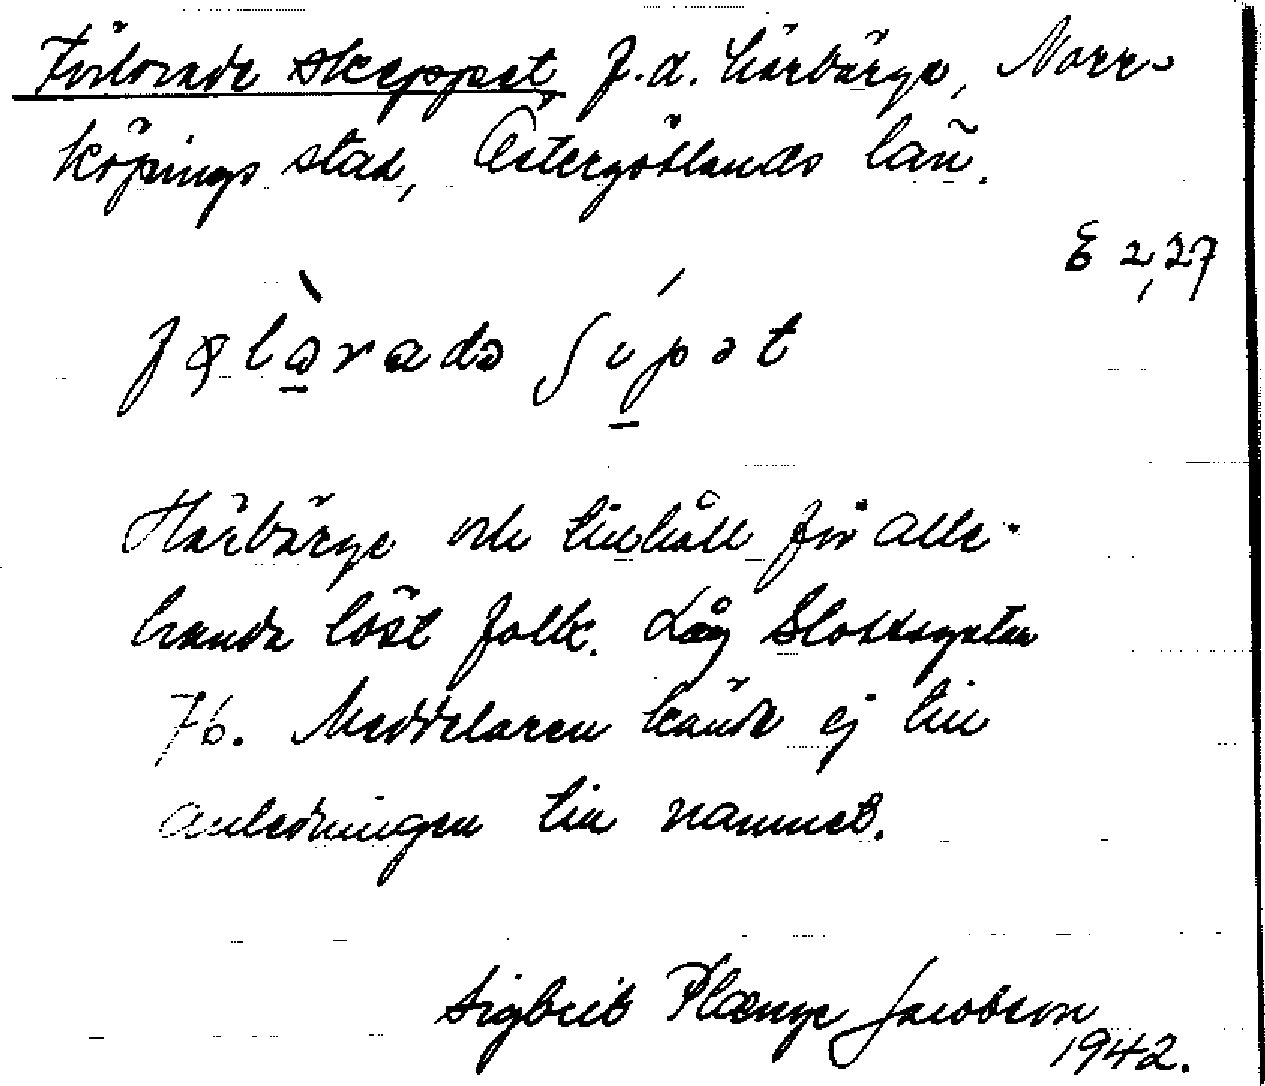 Förlorade skeppet, f.d. härbärge, Norr-
köpings stad, Östergötlands län.
E 2,27
Härbärge och tillhåll för alle-
handa löst folk. Låg Slottsgatan
76. Meddelaren kände ej till
anledningen till namnet.
Sigbrit Plænge Jacobson
1942.